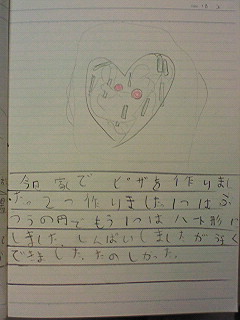 今日 家で ピザを 作りまし
た。2つ作りました。1つはふ
つうの円でもう1つはハート形に
しました。しんぱいしましたが
できました。たのしかった。